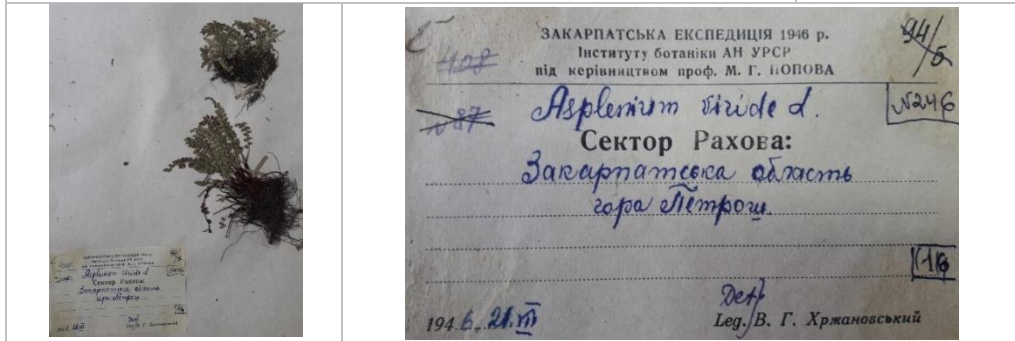 ЗАКАРПАТСЬКА ЕКСПЕДИЦІЯ 1946 р.
Інституту ботаніки АН УРСР
під керівництвом проф. М. Г. ПОПОВА
408
94/б
N 87
Asplenium viride L.
N246
Сектор Рахова:
Закарпатська область
гора Петрош.
Det
1946. 21.VII
Leg. В. Г. Хржановський